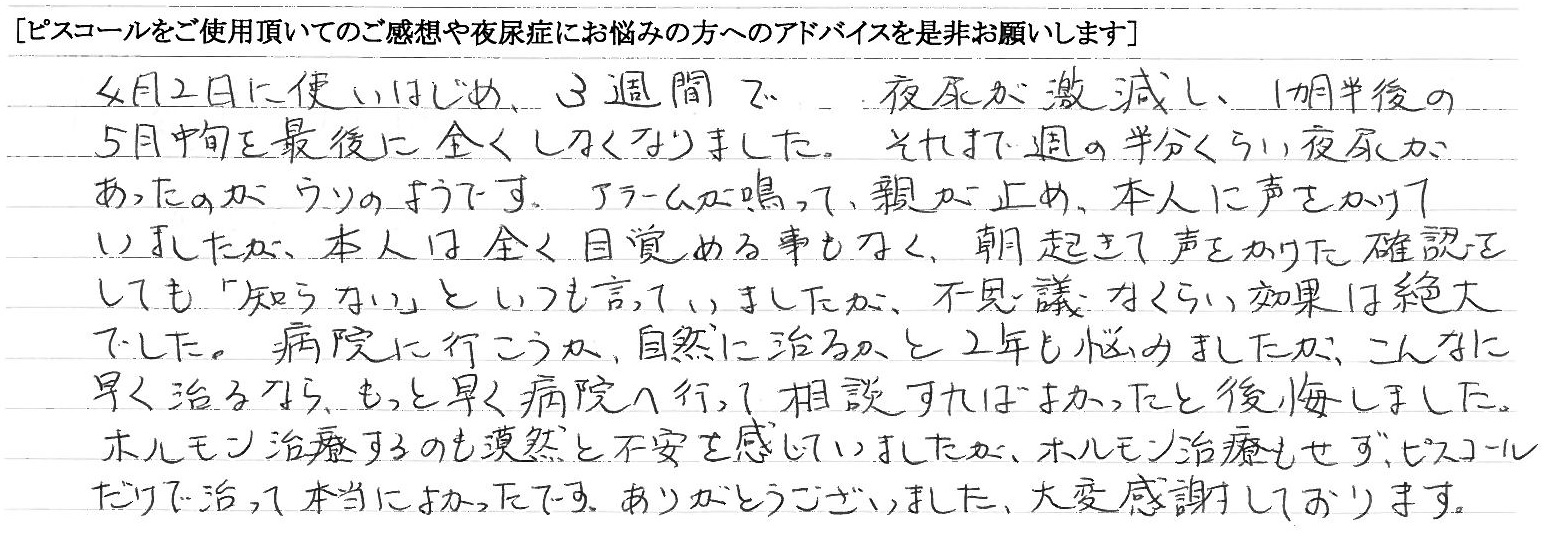 [ピスコールをご使用頂いてのご感想や夜尿症にお悩みの方へのアドバイスを是非お願いします]
4月2日に使いはじめ、3週間で 夜尿が激減し、1カ月半後の
5月中旬を最後に全くしなくなりました。それまで週の半分くらい夜尿が
あったのがウソのようです。アラームが鳴って、親が止め、本人に声をかけて
いましたが、本人は全く目覚める事もなく、朝起きて声をかけた確認を
しても「知らない」といつも言っていましたが、不思議なくらい効果は絶大
でした。病院に行こうか、自然に治るかと2年も悩みましたが、こんなに
早く治るなら、もっと早く病院へ行って相談すればよかったと後悔しました。
ホルモン治療するのも漠然と不安を感じていましたが、ホルモン治療もせず、ピスコール
だけで治って本当によかったです。ありがとうございました、大変感謝しております。